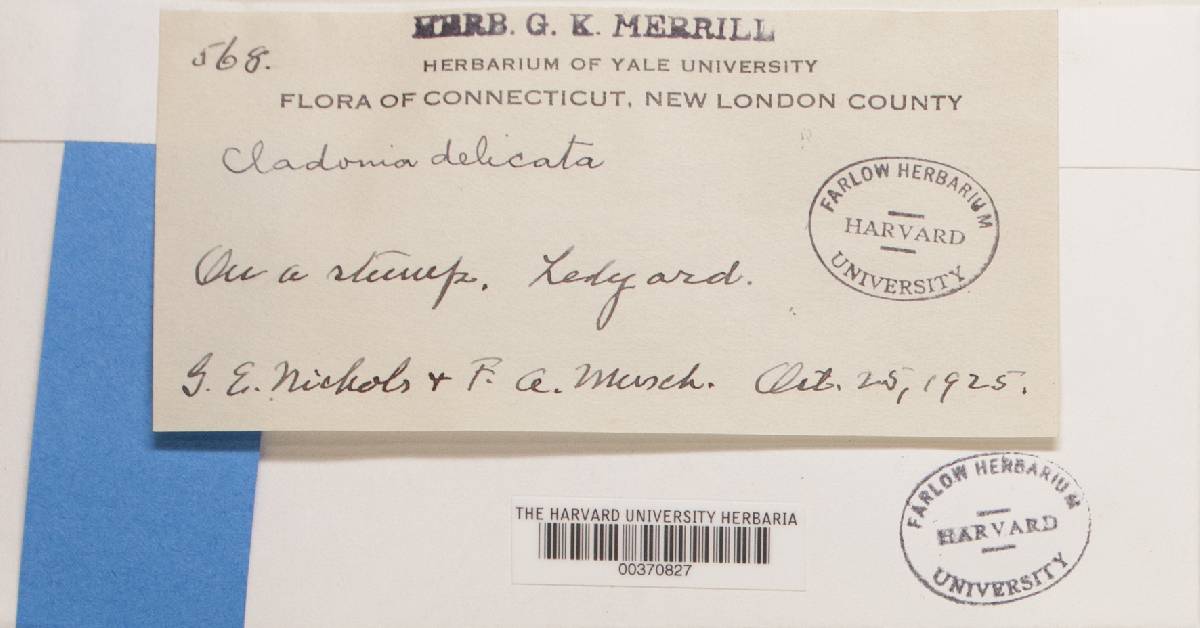 HERB. G. K. MERRILL
568.
HERBARIUM OF YALE UNIVERSITY
FLORA OF CONNECTICUT, NEW LONDON COUNTY
Cladonia delicata
FARLOW HERBARIUM
HARVARD
UNIVERSITY
On a stump. Ledyard.
G. E. Nichols + F. A. Musch. Oct. 25, 1925.
FARLOW HERBARIUM
HARVARD
UNIVERSITY
THE HARVARD UNIVERSITY HERBARIA
00370827